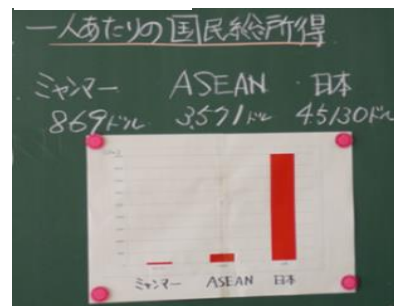 一人あたりの国民総所得
ミャンマー ASEAN 日本
869ドル 3,571ドル 45,130ドル
ミャンマー ASEAN 日本